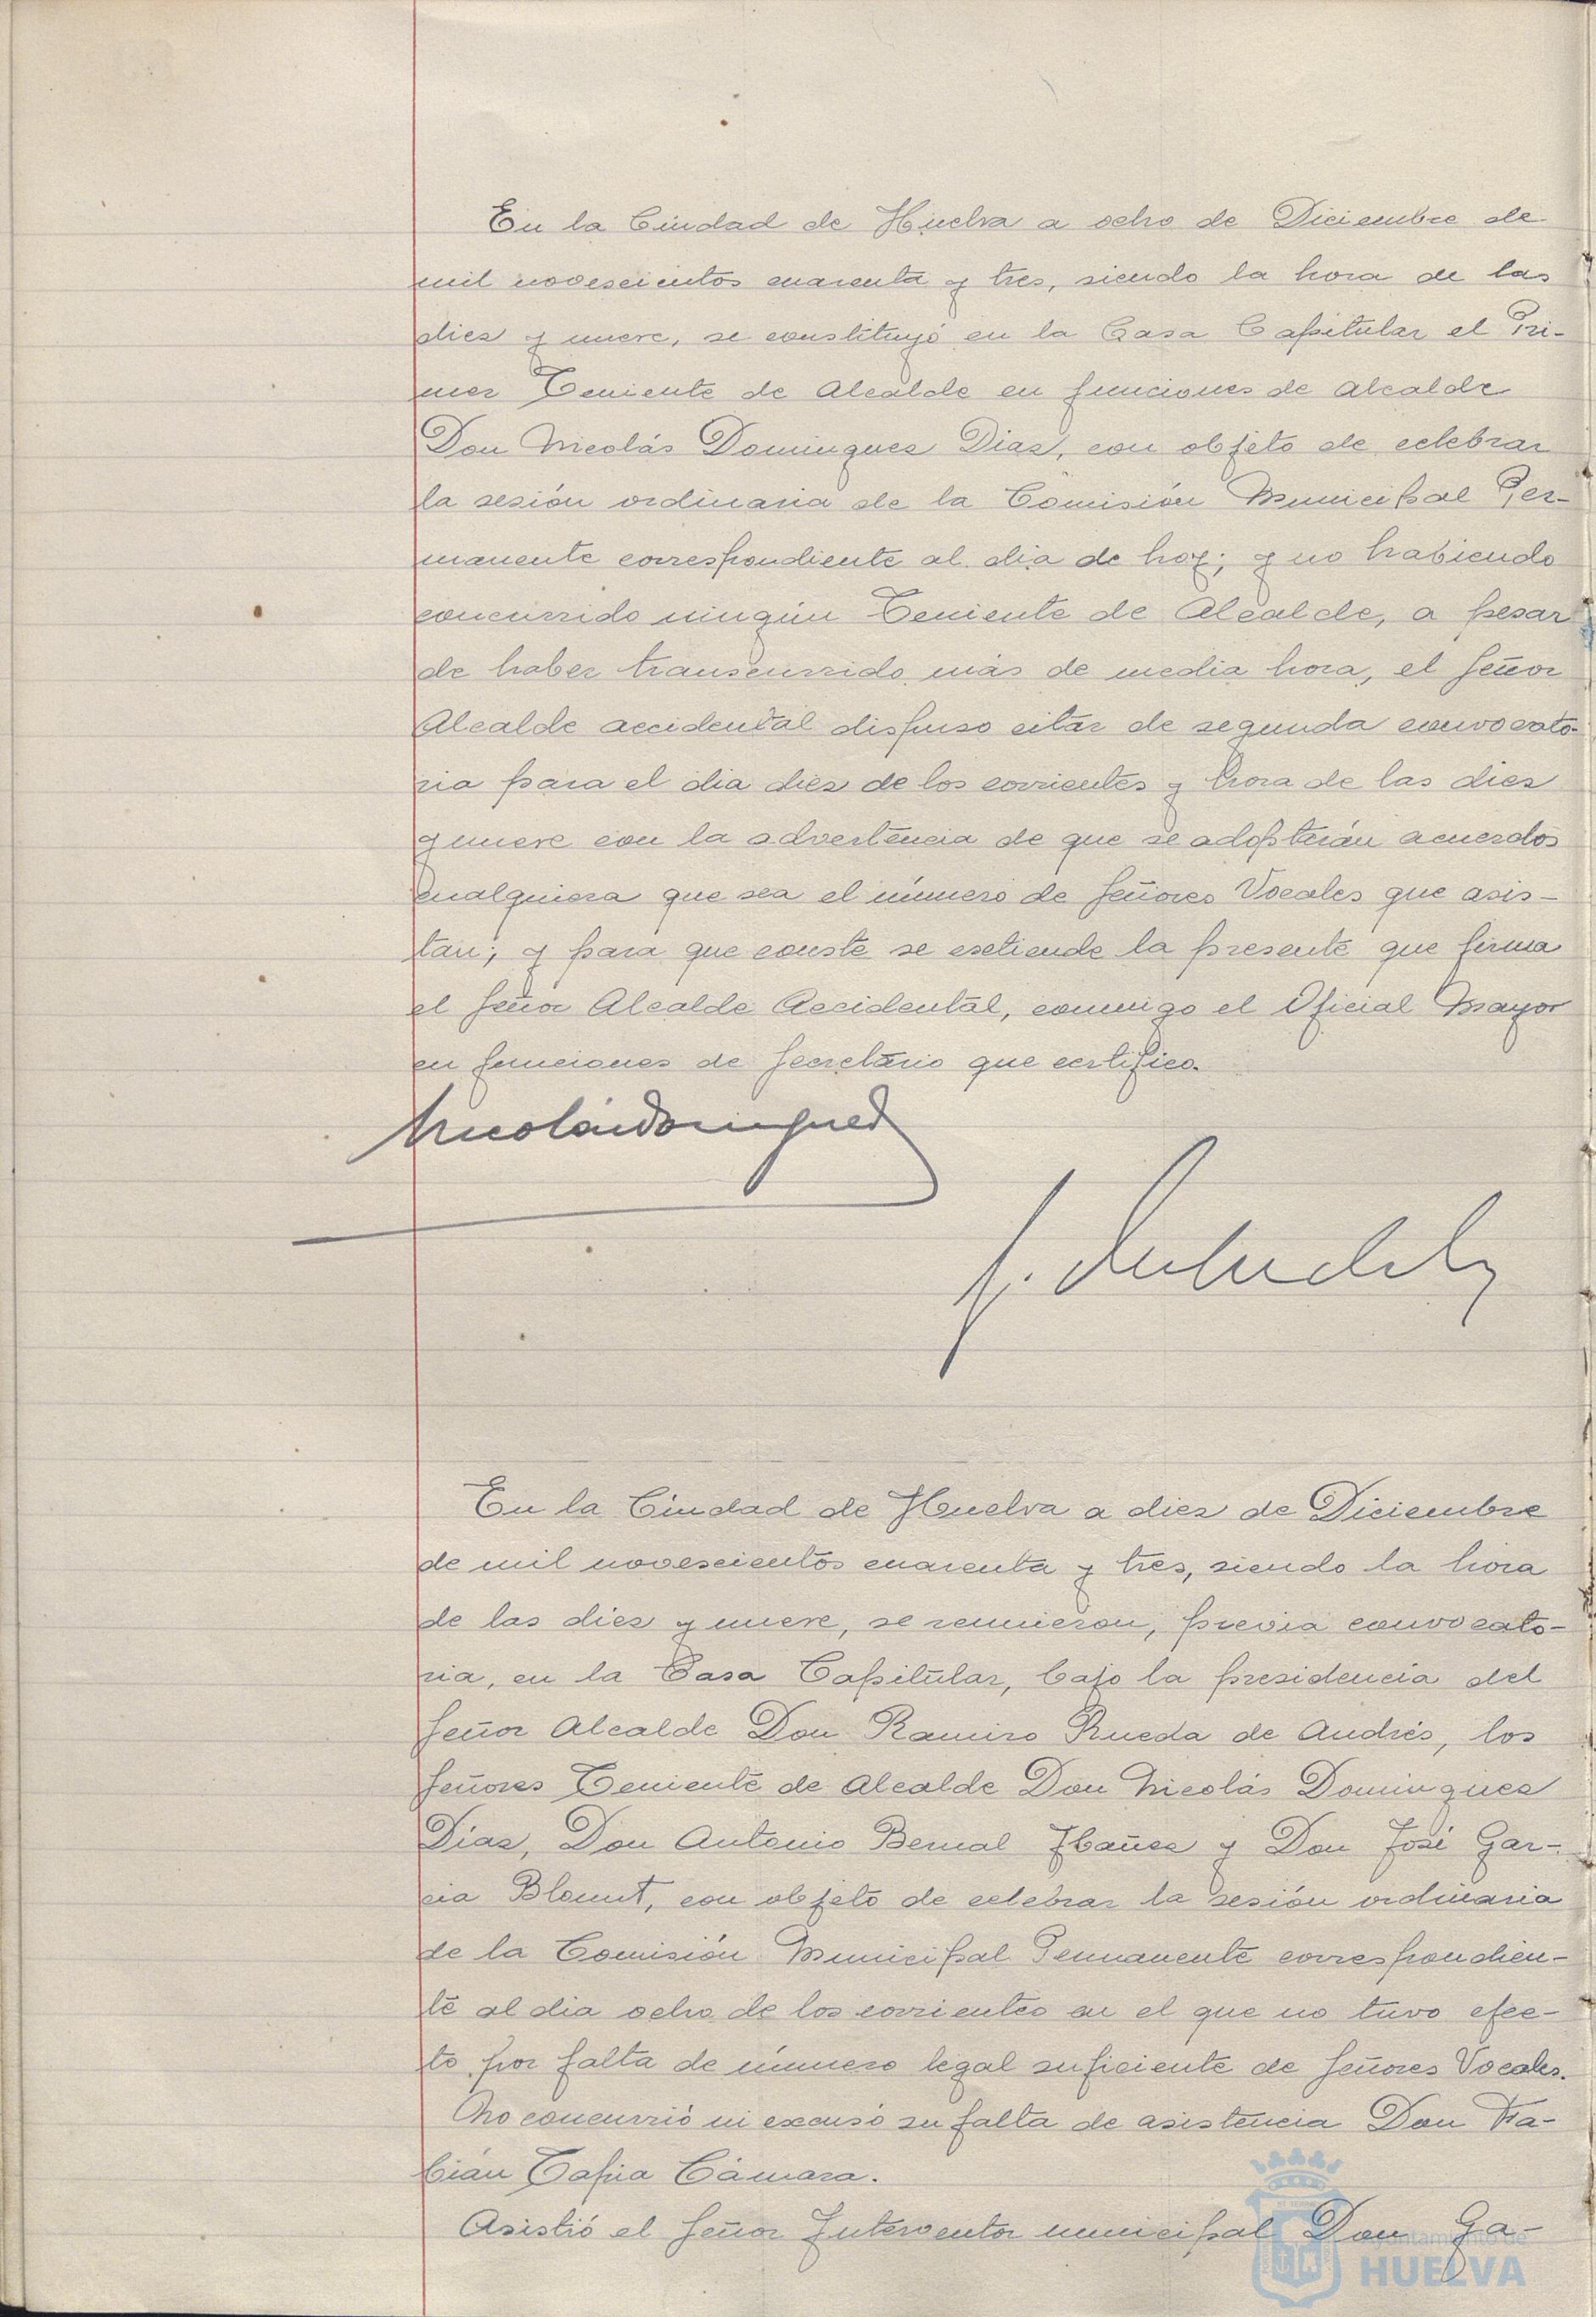 En la Ciudad de Huelva a ocho de Diciembre de
mil novescientos cuarenta y tres, siendo la hora de las
diez y nueve, se constituyó en la Casa Capitular el Pri-
mer Teniente de Alcalde en funciones de Alcalde
Don Nicolás Dominguez Diaz, con objeto de celebrar
la sesión ordinaria de la Comisión Municipal Per-
manente correspondiente al dia de hoy; y no habiendo
concurrido ningún Teniente de Alcalde, a pesar
de haber transcurrido más de media hora, el Señor
Alcalde accidental dispuso citar de segunda convocato-
ria para el dia diez de los corrientes y hora de las diez
y nueve con la advertencia de que se adoptarán acuerdos
cualquiera que sea el número de Señores Vocales que asis-
tan; y para que conste se esctiende la presente que firma
el Señor Alcalde Accidental, conmigo el Oficial Mayor
en funciones de Secretario que certifico.
Nicolás Dominguez
En la Ciudad de Huelva a diez de Diciembre
de mil novescientos cuarenta y tres, siendo la hora
de las diez y nueve, se reunieron, previa convocato-
ria, en la Casa Capitular, bajo la presidencia del
Señor Alcalde Don Ramiro Rueda de Andrés, los
Señores Teniente de Alcalde Don Nicolás Dominguez
Díaz, Don Antonio Bernal Ibañez y Don José Gar-
cia Blount, con objeto de celebrar la sesión ordinaria
de la Comisión Municipal Permanente correspondien-
te al dia ocho de los corrientes en el que no tuvo efec-
to por falta de número legal suficiente de Señores Vocales.
No concurrió ni excusó su falta de asistencia Don Fa-
bián Tapia Cámara.
Asistió el Señor Interventor municipal Don Ga-
Ayuntamiento de
HUELVA